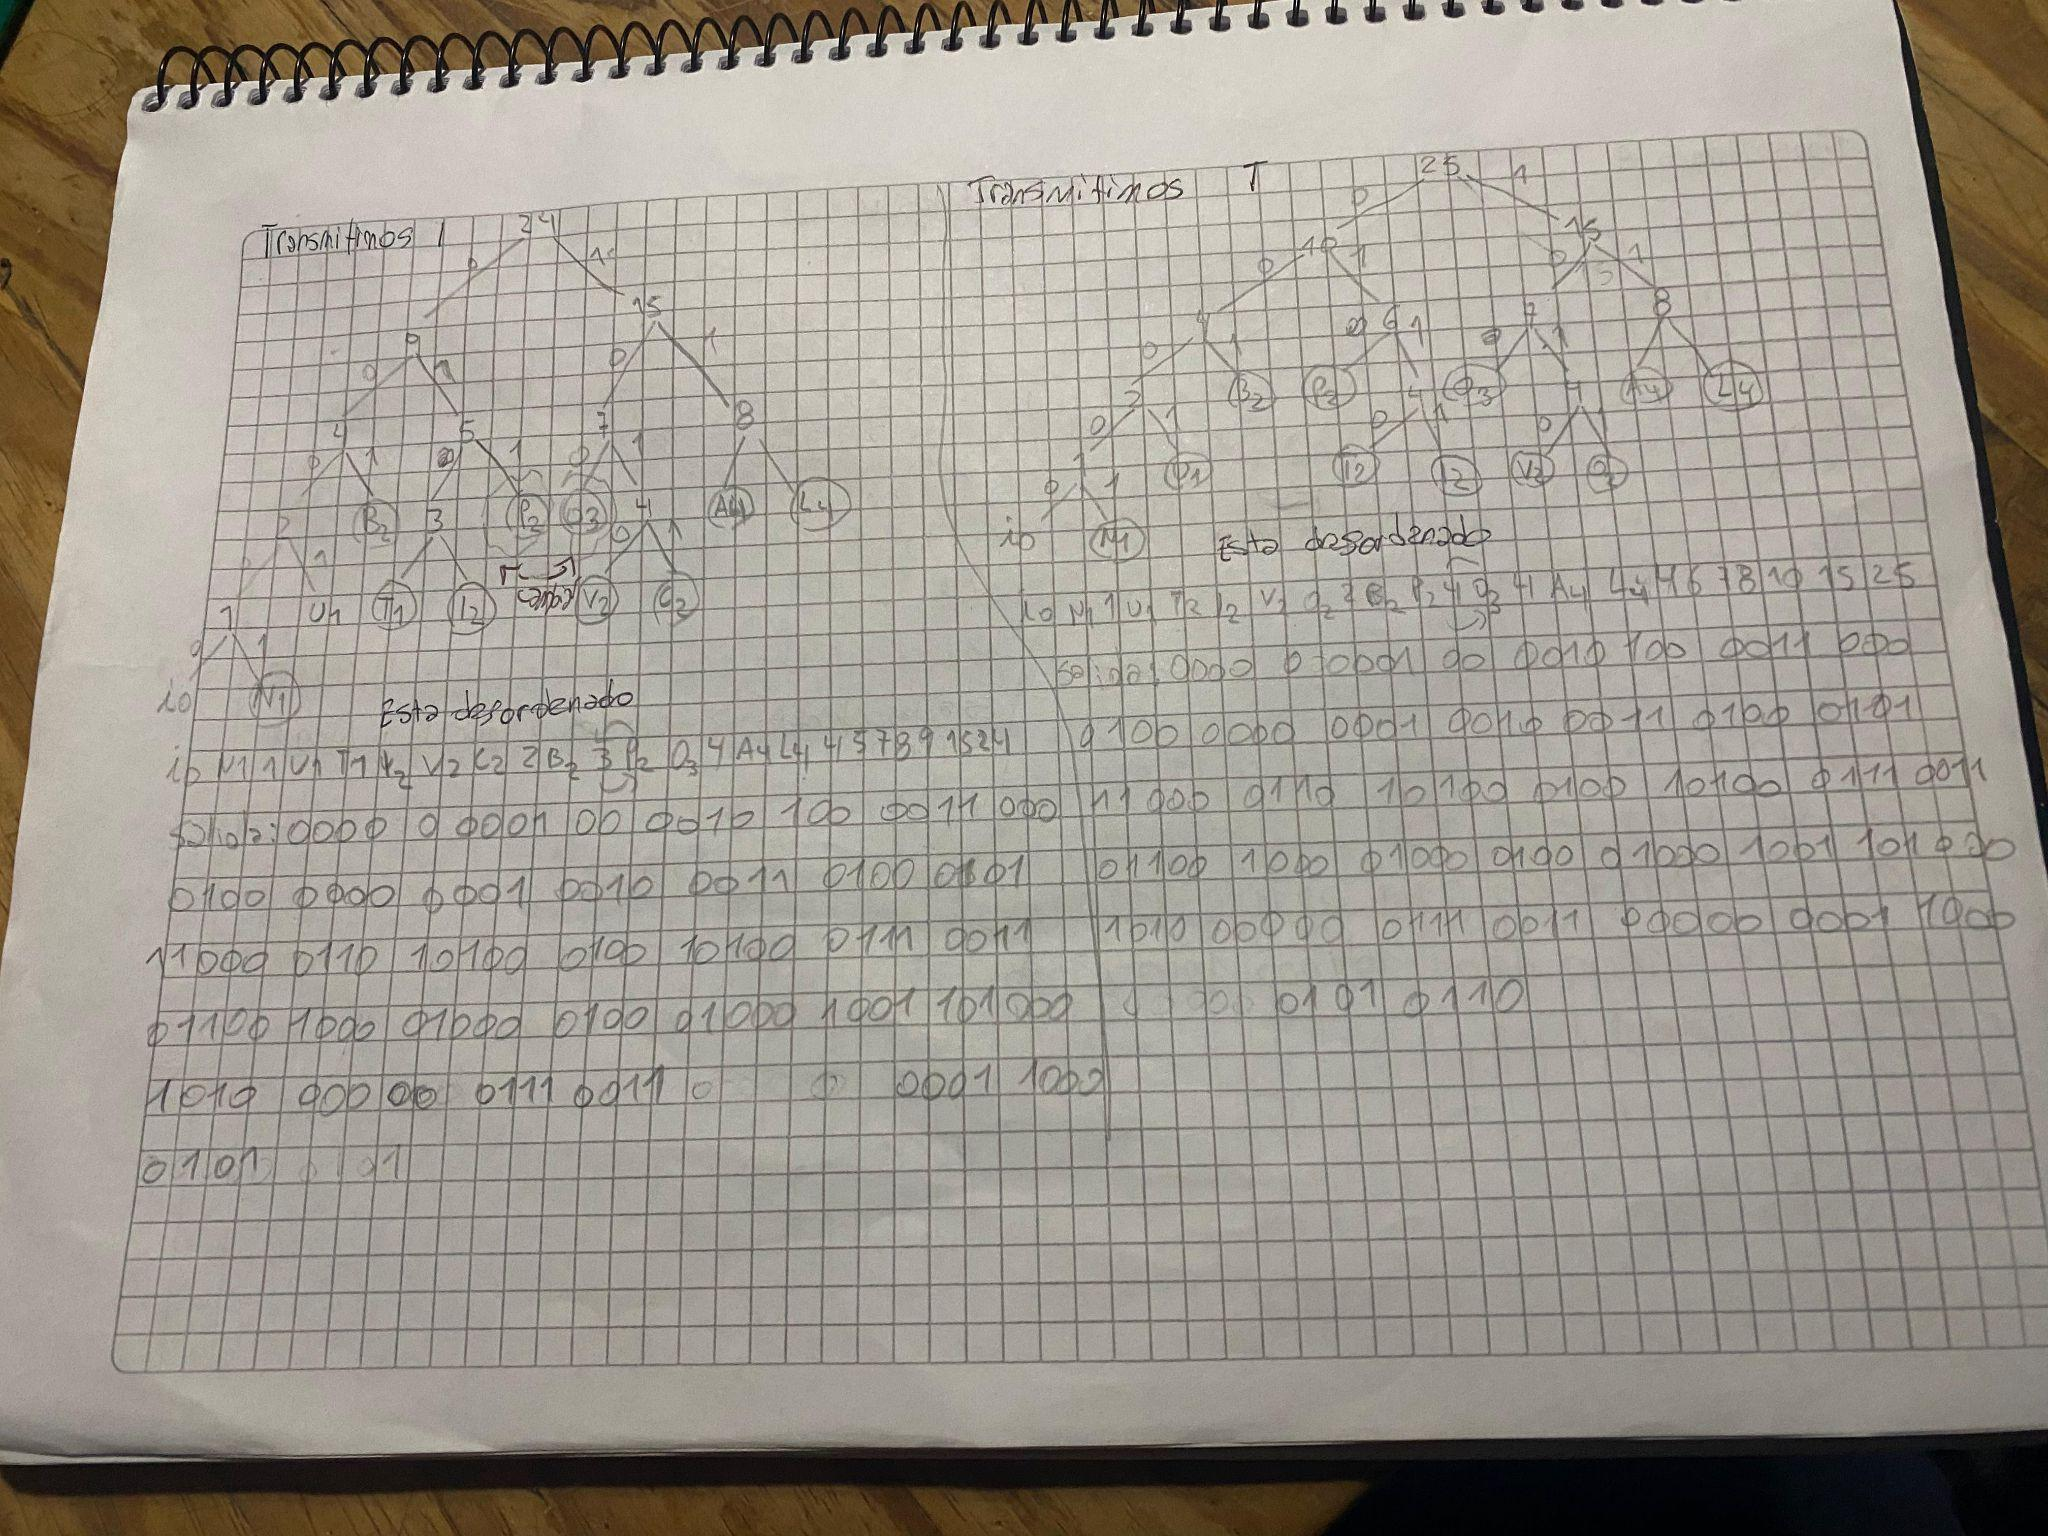 Transmitimos I
24
0 1
9 15
0 1 0 1
4 5 7 8
0 1 0 1 0 1
2 B2 3 P2 O3 4 A4 L4
1 0 1
1 U1 T1 I2 cambia V2 C2
0 1
io N1
Esta desordenado
io N1 1 U1 T1 I2 V2 C2 2 B2 3 P2 O3 4 A4 L4 4 5 7 8 9 15 24
Salida: 0000 0 0001 00 0010 100 0011 000
0100 0000 0001 0010 0011 0100 0101
11000 0110 10100 0100 10100 0111 0011
01100 1000 01000 0100 01000 1001 101000
1010 00000 0111 0011 0001 1000
0101
Transmitimos T
25
0 1
10 15
0 1 0 1
4 6 7 8
0 1 0 1 0 1
2 B2 P2 4 O3 4 A4 L4
0 1 0 1 0
1 U1 T2 I2 V2 C2
0 1
io N1
Esta desordenado
io N1 1 U1 T2 I2 V2 C2 2 B2 P2 4 O3 4 A4 L4 4 6 7 8 10 15 25
Salida: 0000 0 0001 00 0010 100 0011 000
0100 0000 0001 0010 0011 0100 0101
11000 0110 10100 0100 10100 0111 0011
01100 1000 01000 0100 01000 1001 101000
1010 00000 0111 0011 00000 0001 1000
0101 0110